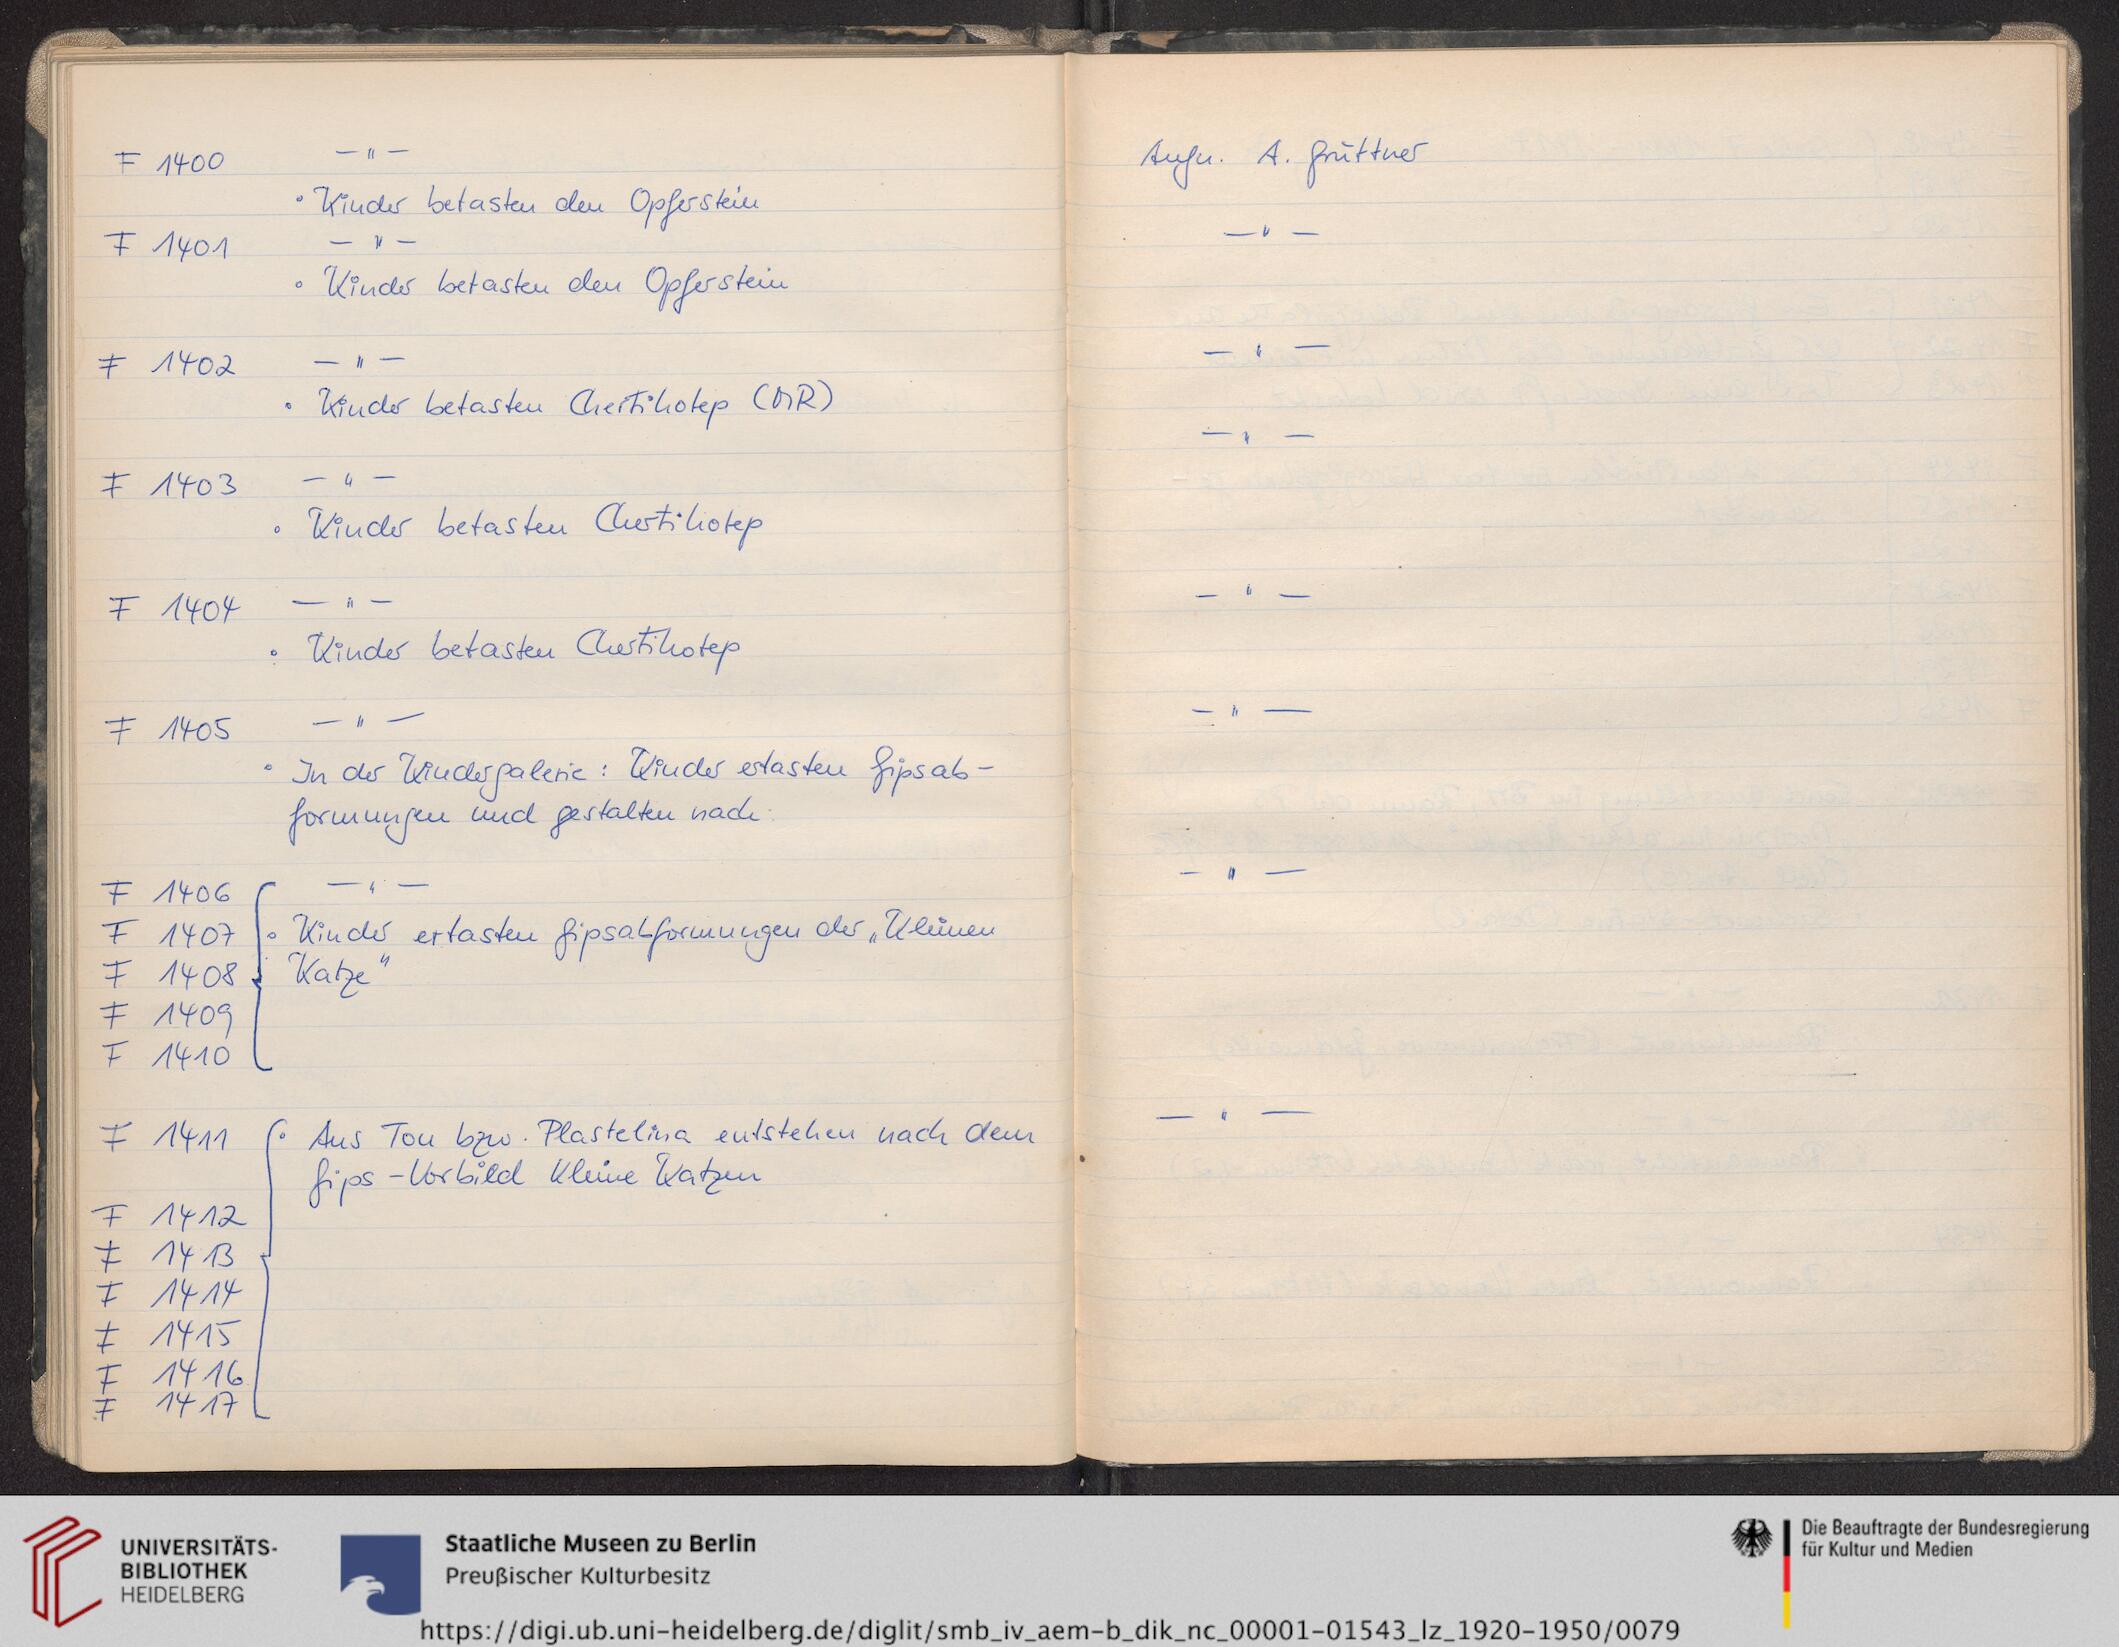 F 1400 — " —
• Kinder betasten den Opferstein
F 1401 — " —
• Kinder betasten den Opferstein
F 1402 — " —
• Kinder betasten Chertihotep (MR)
F 1403 — " —
• Kinder betasten Chertihotep
F 1404 — " —
• Kinder betasten Chertihotep
F 1405 — " —
• In der Kindergalerie: Kinder ertasten Gipsab-
formungen und gestalten nach.
F 1406 — " —
F 1407 • Kinder ertasten Gipsabformungen der „Kleinen
F 1408 Katze"
F 1409
F 1410
F 1411 • Aus Ton bzw. Plastelina entstehen nach dem
Gips-Vorbild kleine Katzen
F 1412
F 1413
F 1414
F 1415
F 1416
F 1417
Aufn. A. Grüttner
— " —
— " —
— " —
— " —
— " —
— " —
— " —
UNIVERSITÄTS-
BIBLIOTHEK
HEIDELBERG
Staatliche Museen zu Berlin
Preußischer Kulturbesitz
Die Beauftragte der Bundesregierung
für Kultur und Medien
https://digi.ub.uni-heidelberg.de/diglit/smb_iv_aem-b_dik_nc_00001-01543_lz_1920-1950/0079